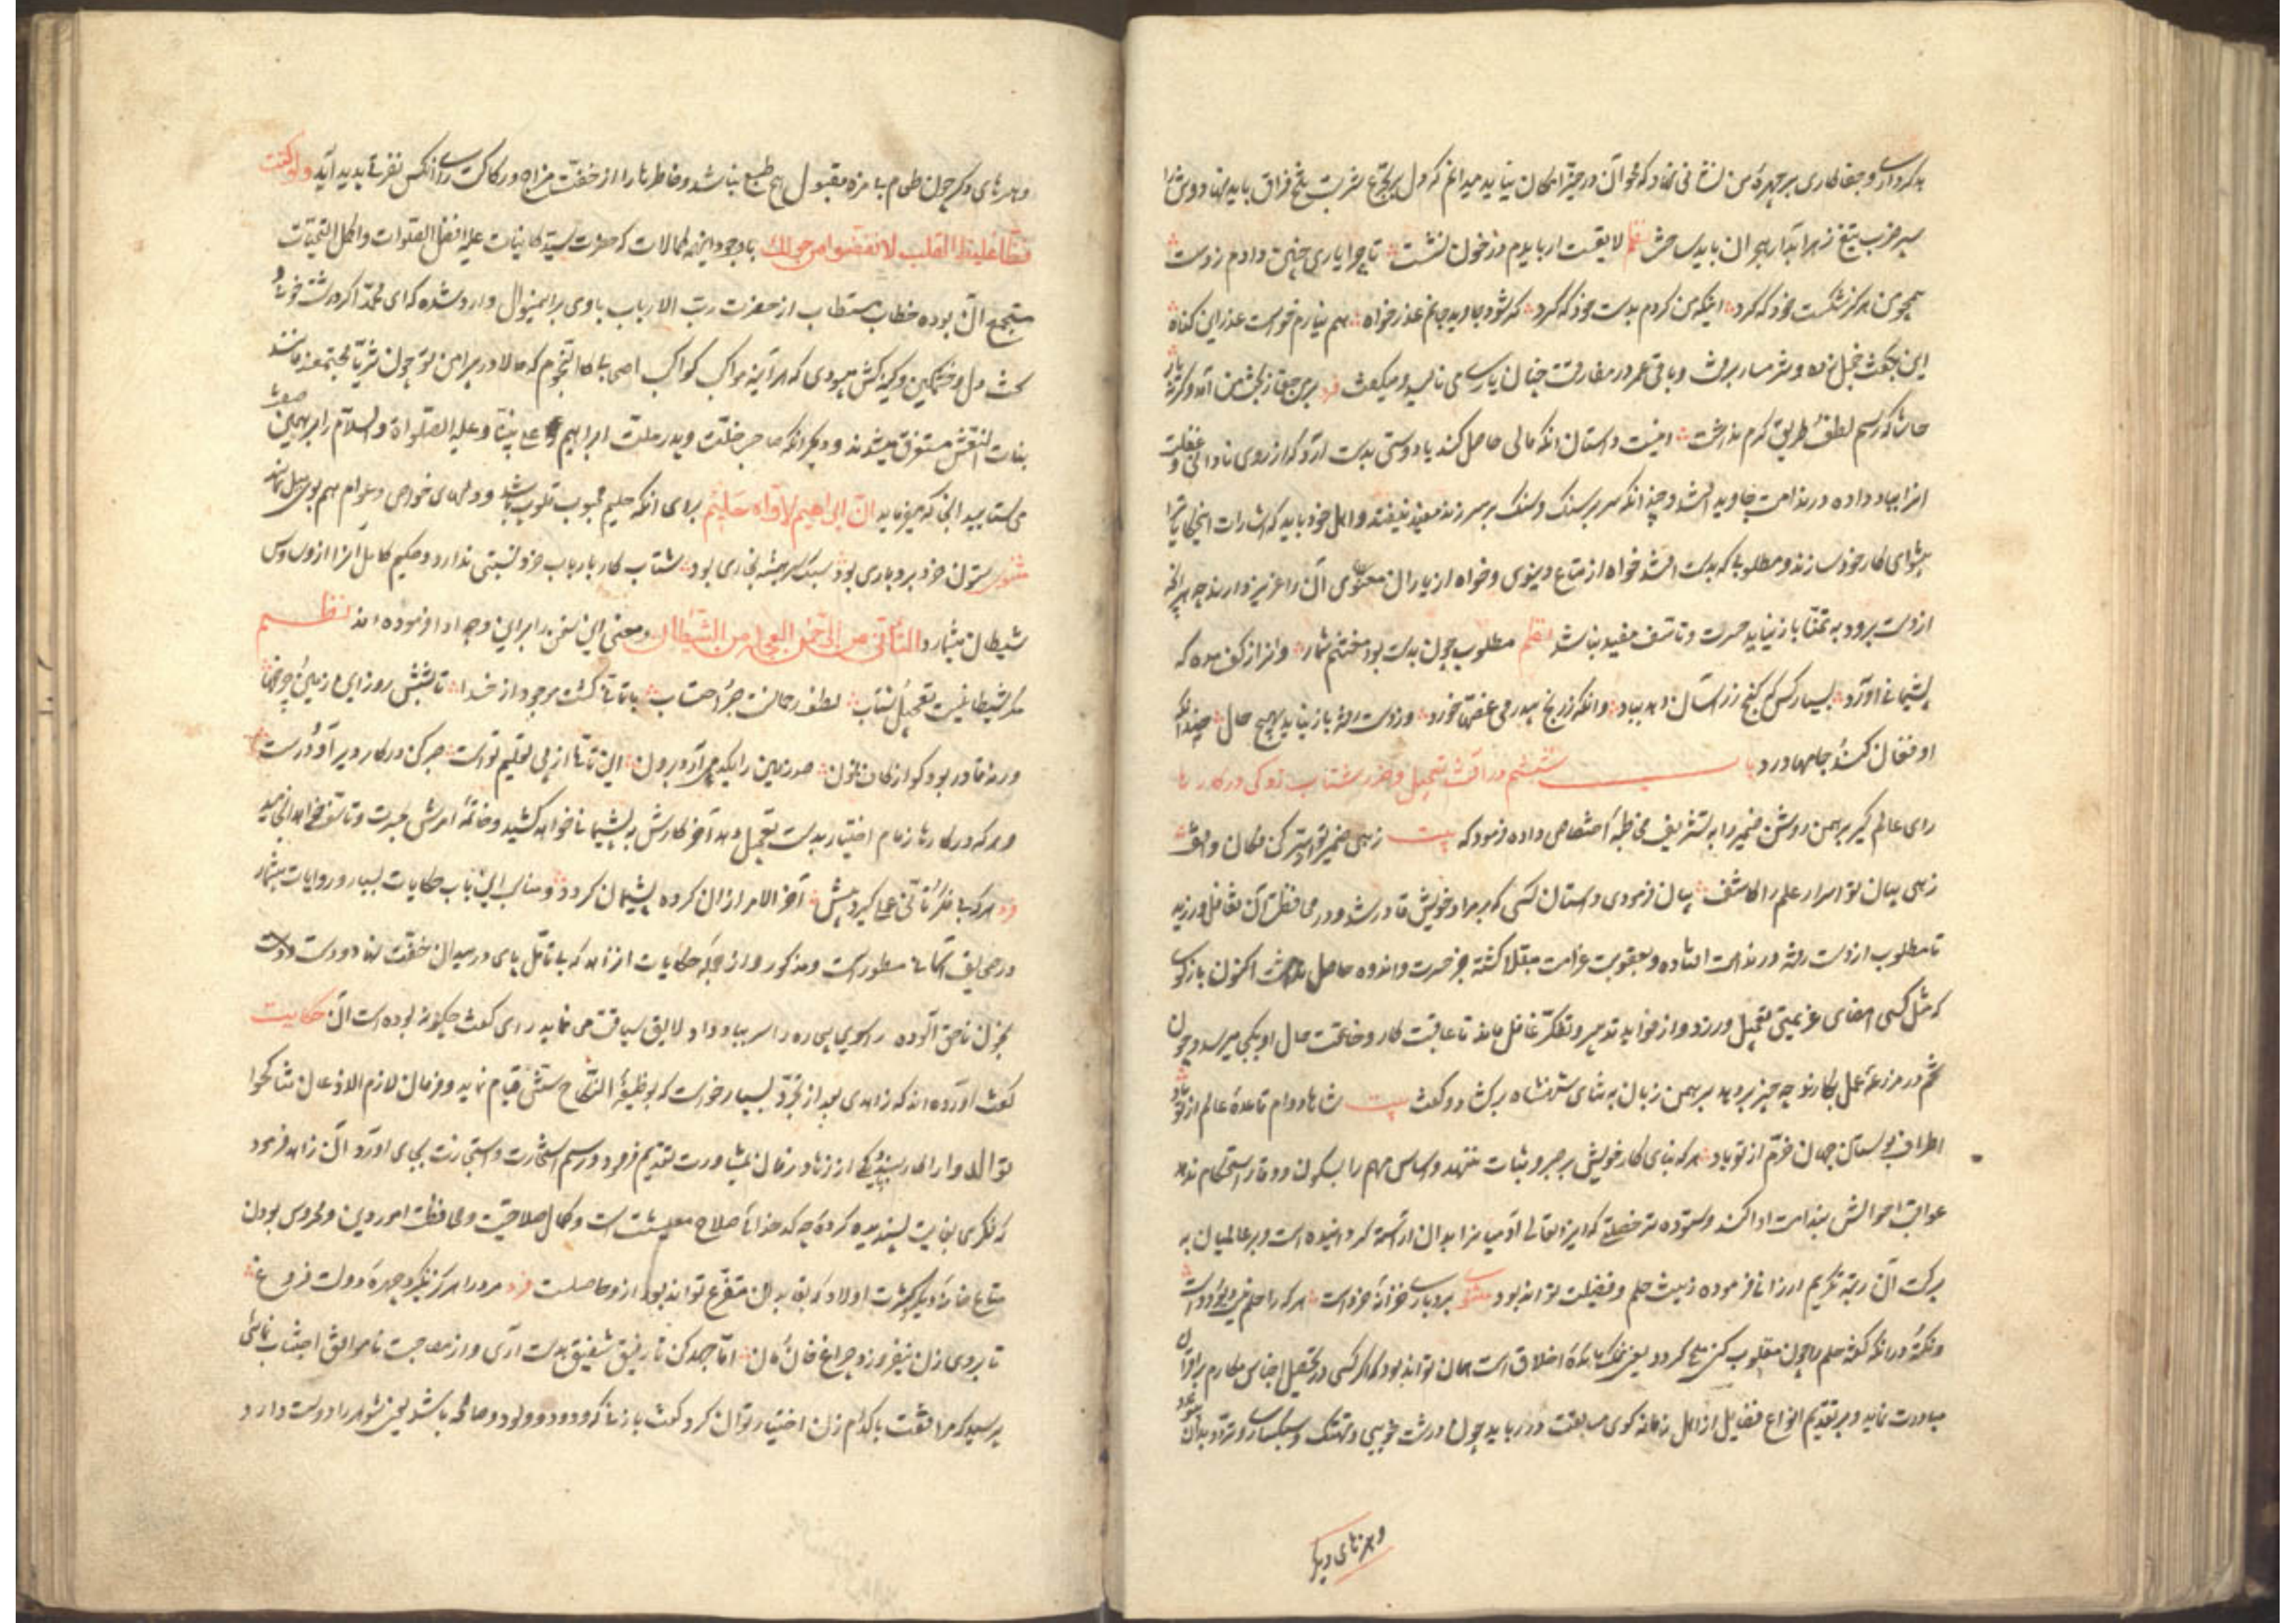 بدکرداری و جفاکاری بر چهرهٔ من نشانی نهاد که محو آن در حیز امکان نیاید میدانم که دل بر تجرع شربت تلخ فراق باید نهاد و تن را
سپر ضرب تیغ زهر آبدار هجران باید ساخت نظم لایقست ار با دم در خون نشست تا چرا یاری چنین دادم ز دست
همچو من هرگز شکست خود که کرد اینکه من کردم بدست خود که کرد گر شود جاوید جانم عذرخواه هم نیارم خواست عذر این گناه
این بگفت خجل زده و شرمسار برفت و باقی عمر در مفارقت چنان یاری می نالید و میگفت فرد
حاشا که رسم لطف و طریق کرم نداشت اینست داستان آنکه مالی حاصل کند یا دوستی بدست آرد و آنگه از روی نادانی و غفلت
آنرا بباد داده در ندامت جاوید افتد و چندانکه سر بر سنک و سنک بر سر زند مفید نیفتد و اهل خرد باید که اشارات این حکایت را
پیشوای کار خود سازند و مطلوبی که بدست افتد خواه از متاع دنیوی و خواه از یاران معنوی آن را عزیز دارند چه هر آنچه
از دست برود به تمنا باز نیاید حسرت و تاسف مفید نباشد نظم مطلوب چون بدست بود مغتنم شمار و آنرا ز کف مده که
پشیمانی آورد بسیار کس که گنج زر آسان دهد بباد و آنگه ز رنج بیدرمی غصها خورد و ز دست رفته باز نیاید بهیچ حال چندانکه
او فغان کند و جامها درد باب ششم در آفت تعجیل و ضرر شتاب زدگی در کارها
رای عالم گیر برهمن روشن ضمیر را به تشریف مخاطبه اختصاص داده فرمود که بیت زهی ضمیر تو بر سر کن فکان واقف
زهی بیان تو اسرار علم را کاشف بیان فرمودی داستان کسی که بر مراد خویش قادر شود و در محافظت آن تغافل ورزیده
تا مطلوب از دست رفته در ندامت افتاده و بعقوبت غرامت مبتلا گشته جز حسرت و اندوه حاصل نداشت اکنون بازگوی
که مثل کسی امضای عزیمتی تعجیل ورزد و از فواید تدبر و تفکر غافل ماند تا عاقبت کار و خاتمت حال او بکجا میرسد و چون
تخم در مزرعهٔ عمل بکارد چه چیز بر دهد برهمن زبان به ثنای شهنشاه برگشاد و گفت بیت شاها دوام قاعدهٔ عالم از تو باد
اطراف بوستان جهان خرم از تو باد هر که بنای کار خویش بر صبر و ثبات ننهد و اساس مهم را بسکون و وقار استحکام ندهد
عواقب احوالش بندامت ادا کند و ستوده تر خصلتی که ایزد تعالی آدمیان را بدان آراسته گردانیده است و بر عالمیان به
برکت آن رتبهٔ تکریم ارزانی فرموده زینت حلم و فضیلت تواند بود مثنوی بردباری خزانهٔ خردست هر که را حلم نیست دیو و ددست
و نکته در آنکه گفته حلم را چون مقلوب کنی ملح گردد یعنی نمک مائدهٔ اخلاق است همان تواند بود که اگر کسی در تحصیل اجناس مکارم بر اقران
مبادرت نماید و بر تقدیم انواع فضایل از اهل زمانه گوی مسابقت در رباید چون درشت خویی و تهتک و سبکساری و تردد بدان
و هنرهای دیگر
و هنرهای دیگر چون طعام بی مزه مقبول هیچ طبع نباشد و خاطرها را از خفت مزاج و رکاکت رای آن کس نفرتی پدید آید و لو کنت
فظا غلیظ القلب لانفضوا من حولک با وجود این همه کمالات که حضرت سید کاینات علیه افضل الصلوات و اکمل التحیات
مستجمع آن بوده خطاب مستطاب از حضرت رب الارباب با وی بر این منوال وارد شده که ای محمد اگر درشت خوی و
سخت دل و خشمگین و کینه کش میبودی که هر آینه مواکب کواکب اصحابی کالنجوم که حالا در پیرامن تو چون ثریا مجتمعند مانند
بنات النعش متفرق میشدند و دیگر آنکه صاحب خلت و پدر ملت ابراهیم علی نبینا و علیه الصلوة و السلام را بر همین صفت
می ستاید انجا که میفرماید ان ابراهیم لاواه حلیم برای آنکه حلیم محبوب قلوب باشد و دلهای خواص و عوام هم بوی میل نماید
مثنوی ستون خرد بردباری بود سبک سر همیشه بخواری بود شتاب کار با ارباب خرد نسبتی ندارد و حکیم کامل آنرا از وساوس
شیطان میشمارد التأنی من الرحمن العجلة من الشیطان و معنی این سخن را بر این وجه ادا فرموده اند نظم
مکر شیطانیست تعجیل و شتاب لطف رحمانست صبر و احتساب با تانی گشت موجود از خدا تا بشش روز این زمین و چرخها
ورنه قادر بود کو از کاف نون صد زمین را یکدم آرد برون این تانی از پی تعلیم تست صبر کن در کار دیر آ و درست
و هر که در کارها زمام اختیار بدست تعجیل دهد آخر کارش به پشیمانی خواهد کشید و خاتمهٔ امرش بحسرت و تاسف خواهد انجامید
فرد هر که بی فکر و تانی عملی گیرد پیش آخر الامر از آن کرده پشیمان گردد و مناسب این باب حکایات بسیار و روایات بیشمار
در صحایف ایام مسطور است و مذکور و از جمله حکایات آن زاهد که بی تامل پای در میدان خفت نهاد و دست
بخون ناحق آلوده راسوی بیچاره را سر بباد داد لایق سیاقت می نماید رای گفت چگونه بوده است آن حکایت
گفت آورده اند که زاهدی بعد از تجرد بسیار خواست که بوظیفهٔ النکاح سنتی قیام نماید و فرمان لازم الاذعان تناکحوا
توالدوا را کار بندد یکی از زهاد زمان بمشاورت تقدیم فرمود و رسم استشارت و استجازت بجای آورد آن زاهد فرمود
که فکری بغایت پسندیده کردهٔ چه کدخدائی صلاح معیشت است و کمال صلاحیت و محافظت امور دین و محروس بودن
متاع خانه و دیگر کثرت اولاد که بقا بدان متفرع تواند بود از و حاصلست فرد مرد را هرگز نگیرد چهرهٔ دولت فروغ
تا بروی زن نیفروزد چراغ خان و مان اما جهد کن تا رفیق شفیق بدست آری و از مصاحبت ناموافق اجتناب نمائی
پرسید که مرافقت با کدام زن اختیار توان کرد گفت با زنی که ودود و ولود و صالحه باشد یعنی شوهر را دوست دارد